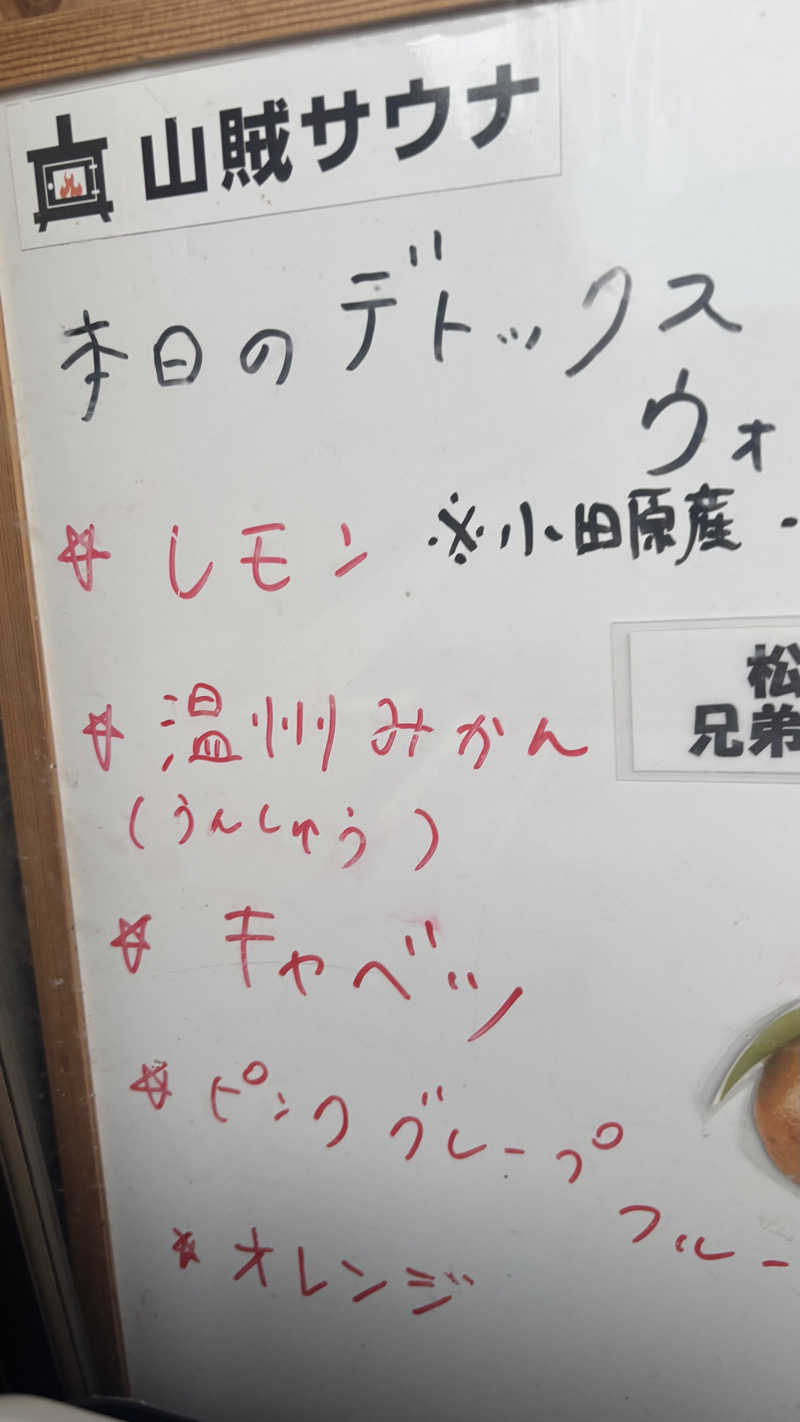 山賊サウナ
本日のデトックス
ウォ
☆ レモン ※小田原産
☆ 温州みかん
(うんしゅう)
松
兄弟
☆ キャベツ
☆ ピンクグレープ
フルー
☆ オレンジ